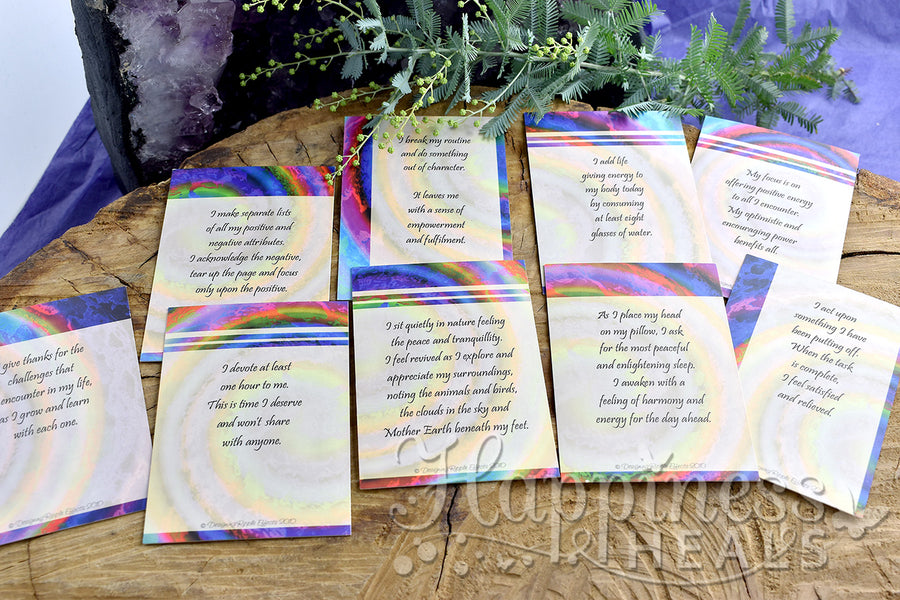 I make separate lists
of all my positive and
negative attributes.
I acknowledge the negative,
tear up the page and focus
only upon the positive.
I break my routine
and do something
out of character.
It leaves me
with a sense of
empowerment
and fulfilment.
I add life
giving energy to
my body today
by consuming
at least eight
glasses of water.
My focus is on
offering positive energy
to all I encounter.
My optimistic and
encouraging power
benefits all.
give thanks for the
challenges that
encounter in my life,
as I grow and learn
with each one.
© Designing Ripple Effects 2010
I devote at least
one hour to me.
This is time I deserve
and won't share
with anyone.
© Designing Ripple Effects 2010
I sit quietly in nature feeling
the peace and tranquillity.
I feel revived as I explore and
appreciate my surroundings,
noting the animals and birds,
the clouds in the sky and
Mother Earth beneath my feet.
© Designing Ripple Effects 2010
As I place my head
on my pillow, I ask
for the most peaceful
and enlightening sleep.
I awaken with a
feeling of harmony and
energy for the day ahead.
© Designing Ripple Effects 2010
I act upon
something I have
been putting off.
When the task
is complete,
I feel satisfied
and relieved.
Happiness
HEALS